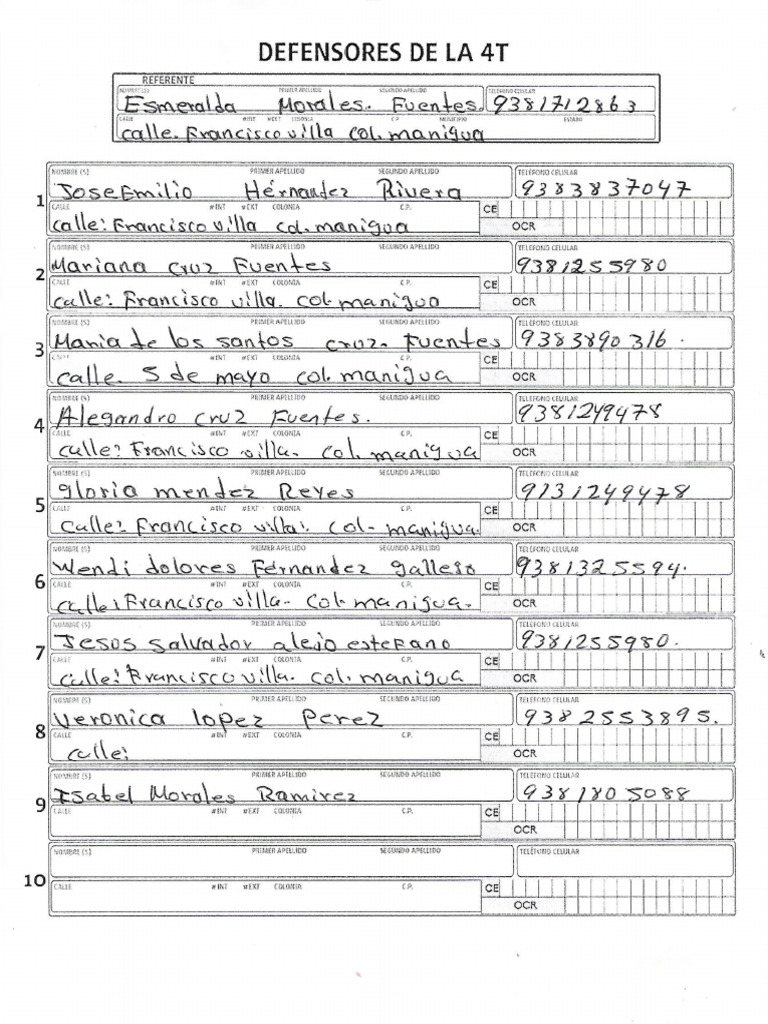 DEFENSORES DE LA 4T
REFERENTE
NOMBRE(S) PRIMER APELLIDO SEGUNDO APELLIDO TELEFONO CELULAR
Esmeralda Morales. Fuentes. 9381712863
CALLE #INT #EXT COLONIA C.P. MUNICIPIO ESTADO
calle. Francisco villa col. manigua
NOMBRE (S) PRIMER APELLIDO SEGUNDO APELLIDO TELEFONO CELULAR
1 Jose Emilio Hérnandez Rivera 9383837047
CALLE #INT #EXT COLONIA C.P. CE
calle: Francisco villa col. manigua OCR
NOMBRE (S) PRIMER APELLIDO SEGUNDO APELLIDO TELEFONO CELULAR
2 Mariana cruz Fuentes 9381255980
CALLE #INT #EXT COLONIA C.P. CE
calle: Francisco villa. col. manigua OCR
NOMBRE (S) PRIMER APELLIDO SEGUNDO APELLIDO TELEFONO CELULAR
3 Maria de los santos cruz. Fuentes 9383890316.
CALLE #INT #EXT COLONIA C.P. CE
calle. 5 de mayo col. manigua OCR
NOMBRE (S) PRIMER APELLIDO SEGUNDO APELLIDO TELEFONO CELULAR
4 Alegandro cruz Fuentes. 9381249478
CALLE #INT #EXT COLONIA C.P. CE
calle: Francisco villa. col. manigua OCR
NOMBRE (S) PRIMER APELLIDO SEGUNDO APELLIDO TELEFONO CELULAR
5 gloria mendez Reyes 9131249478
CALLE #INT #EXT COLONIA C.P. CE
calle: Francisco villa. col. manigua. OCR
NOMBRE (S) PRIMER APELLIDO SEGUNDO APELLIDO TELEFONO CELULAR
6 Wendi dolores Fernandez gallejo 9381325594.
CALLE #INT #EXT COLONIA C.P. CE
calle: Francisco villa. col. manigua. OCR
NOMBRE (S) PRIMER APELLIDO SEGUNDO APELLIDO TELEFONO CELULAR
7 Jesos salvador alejo estefano 9381255980.
CALLE #INT #EXT COLONIA C.P. CE
calle: Francisco villa. col. manigua OCR
NOMBRE (S) PRIMER APELLIDO SEGUNDO APELLIDO TELEFONO CELULAR
8 veronica lopez perez 9382553895.
CALLE #INT #EXT COLONIA C.P. CE
calle: OCR
NOMBRE (S) PRIMER APELLIDO SEGUNDO APELLIDO TELEFONO CELULAR
9 Isabel Morales Ramirez 9381805088
CALLE #INT #EXT COLONIA C.P. CE
OCR
NOMBRE (S) PRIMER APELLIDO SEGUNDO APELLIDO TELEFONO CELULAR
10 CALLE #INT #EXT COLONIA C.P. CE
OCR